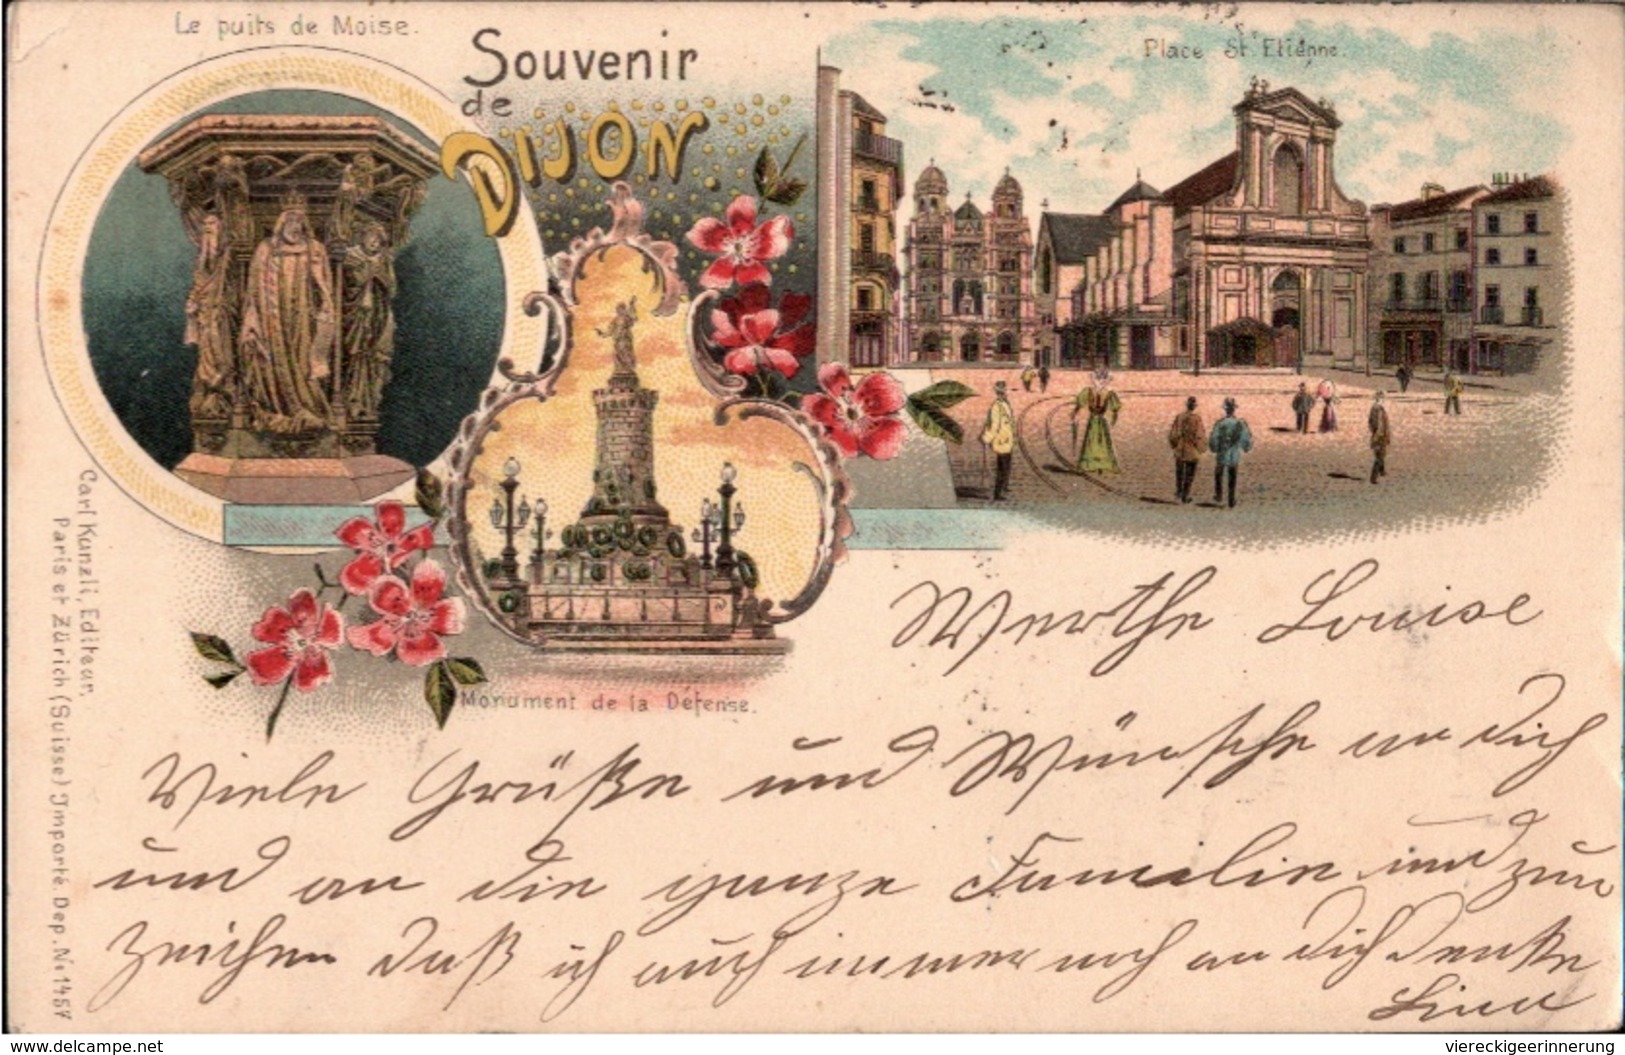 Le puits de Moise.
Souvenir
de
DIJON.
Place St. Etiénne.
Monument de la Défense.
Carl Kunzli, Editeur,
Paris et Zürich (Suisse) Importé. Dep. No 1457
Werthe Louise
Viele Grüße und Wünsche an dich
und an die ganze Familie und zum
Zeichen daß ich auch immer noch an dich denke
Lina
www.delcampe.net
viereckigeerinnerung